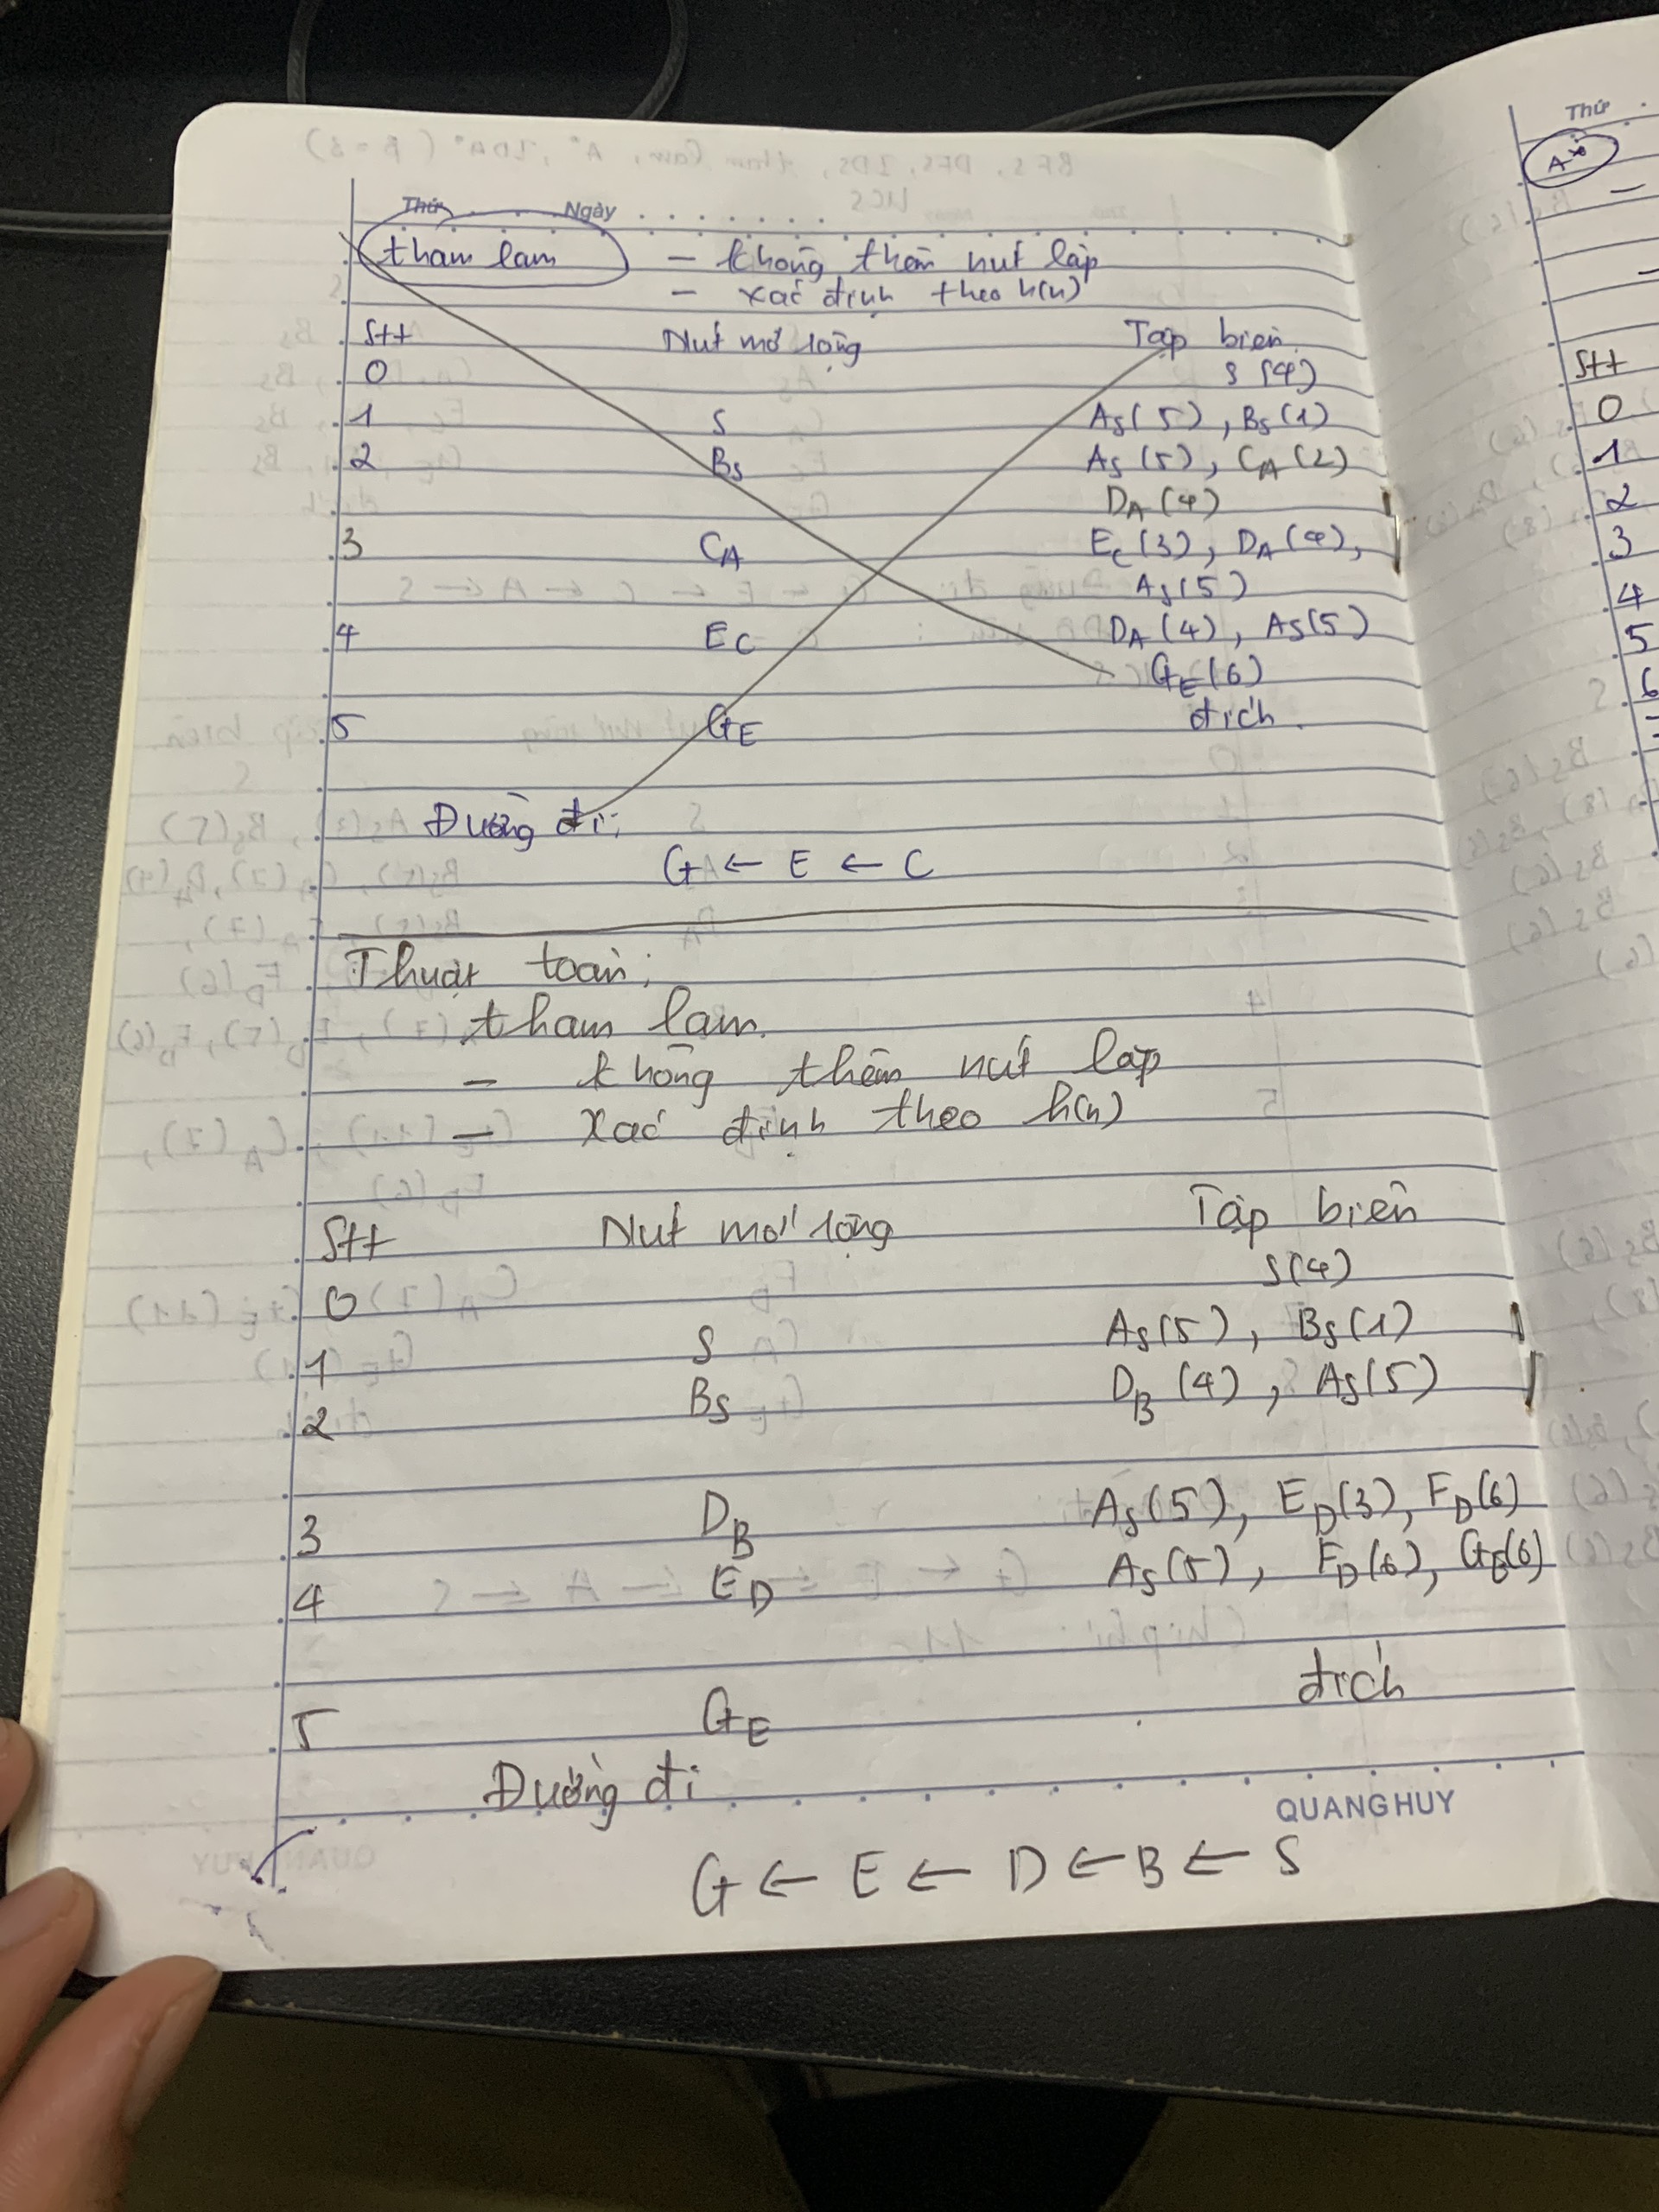 Thứ Ngày
tham lam - không thêm nút lặp
- xác định theo h(n)
Stt Nút mở rộng Tập biên
0 S(4)
1 S As(5), Bs(1)
2 Bs As(5), CA(2)
DA(4)
3 CA Ec(3), DA(4),
As(5)
4 Ec DA(4), As(5)
GE(6)
5 GE đích.
Đường đi:
G ← E ← C
Thuật toán:
tham lam.
- không thêm nút lặp
- xác định theo h(n)
Stt Nút mở rộng Tập biên
0 S(4)
1 S As(5), Bs(1)
2 Bs DB(4), As(5)
3 DB As(5), ED(3), FD(6)
4 ED As(5), FD(6), GE(6)
5 GE đích
Đường đi
QUANG HUY
G ← E ← D ← B ← S
Thứ
A*
-
-
Stt
0
1
2
3
4
5
6